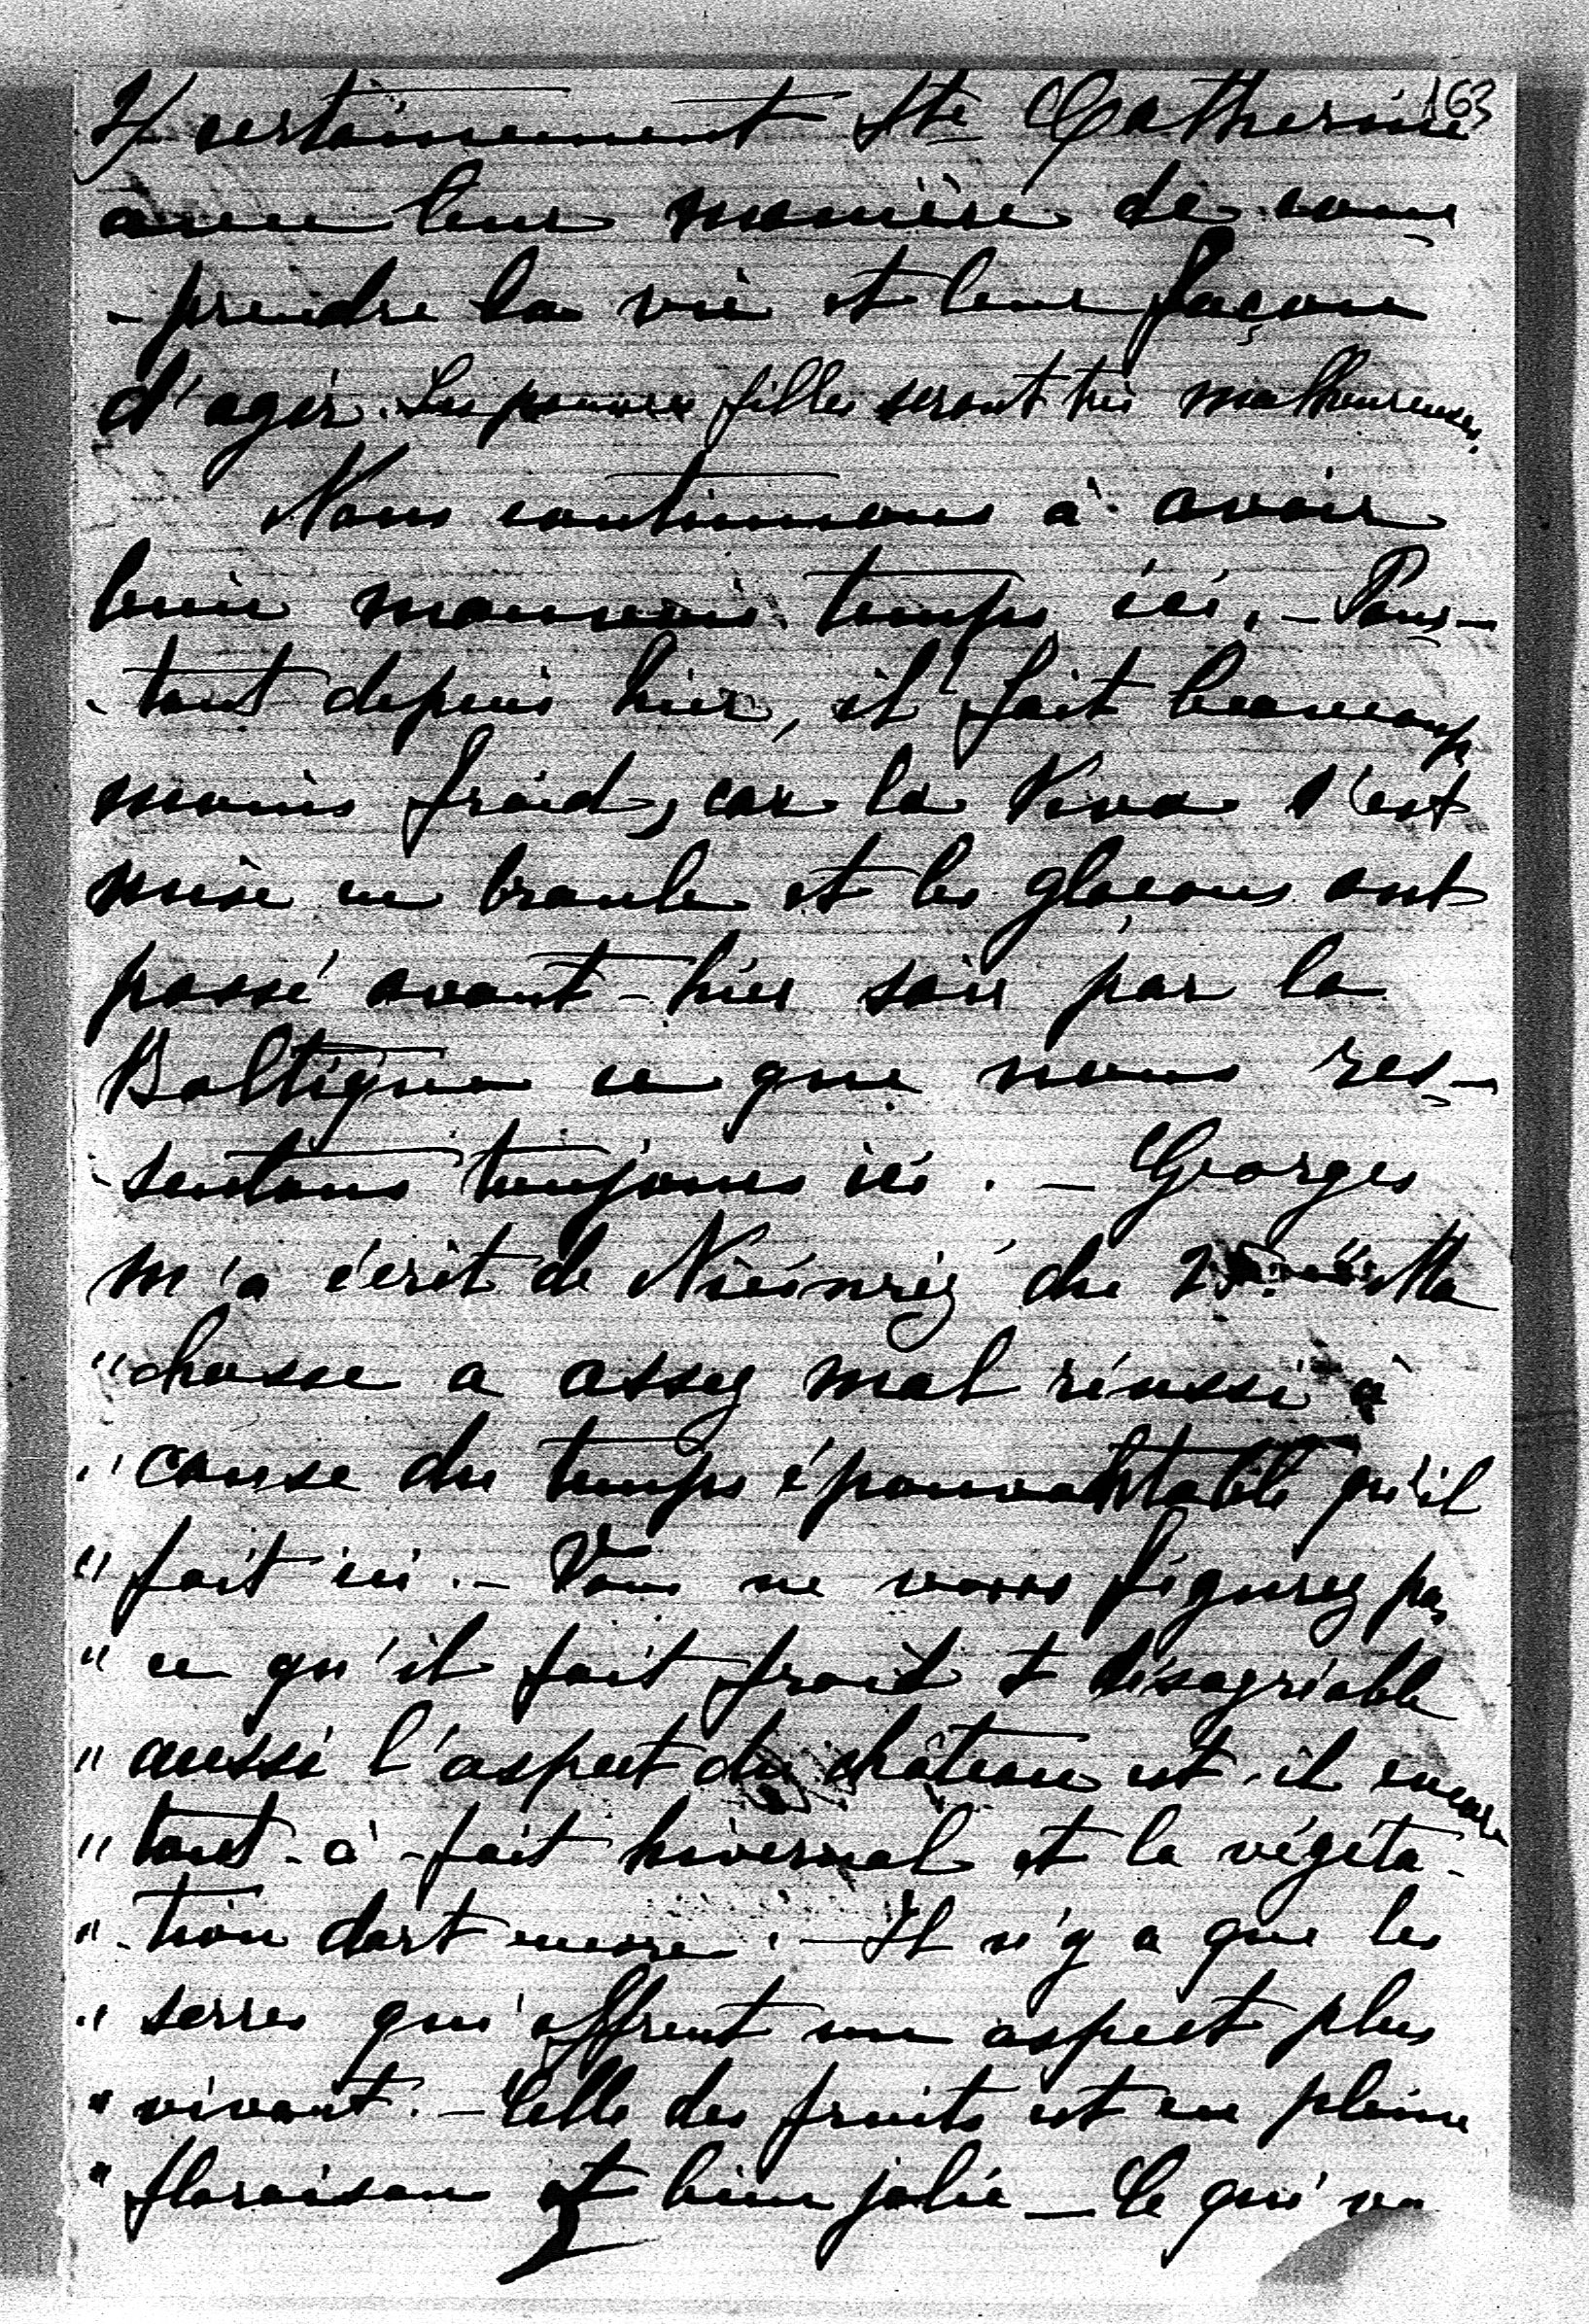 163
certainement Ste Catherine
avec leur manière de com
-prendre la vie et leur façon
d'agir. Les pauvres filles seront très malheureuses.
Nous continuons à avoir
bien mauvais temps ici. – Pour-
-tant depuis hier, il fait beaucoup
moins froid, car la Neva s'est
mise en branle et les glaçons ont
passé avant-hier soir par la
Baltique ce que nous res-
-sentons toujours ici. – Georges
m'a écrit de du 25. "Ma
"chasse a assez mal réussi à
"cause du temps épouvantable qu'il
"fait ici. – Vous ne vous figurez pas
"ce qu'il fait froid et désagréable
"aussi l'aspect du château est-il encore
"tout-à-fait hivernal et la végéta-
"-tion dort encore. – Il n'y a que les
"serres qui offrent un aspect plus
"vivant. – Celle des fruits est en pleine
"floraison et bien jolie – Ce qui va